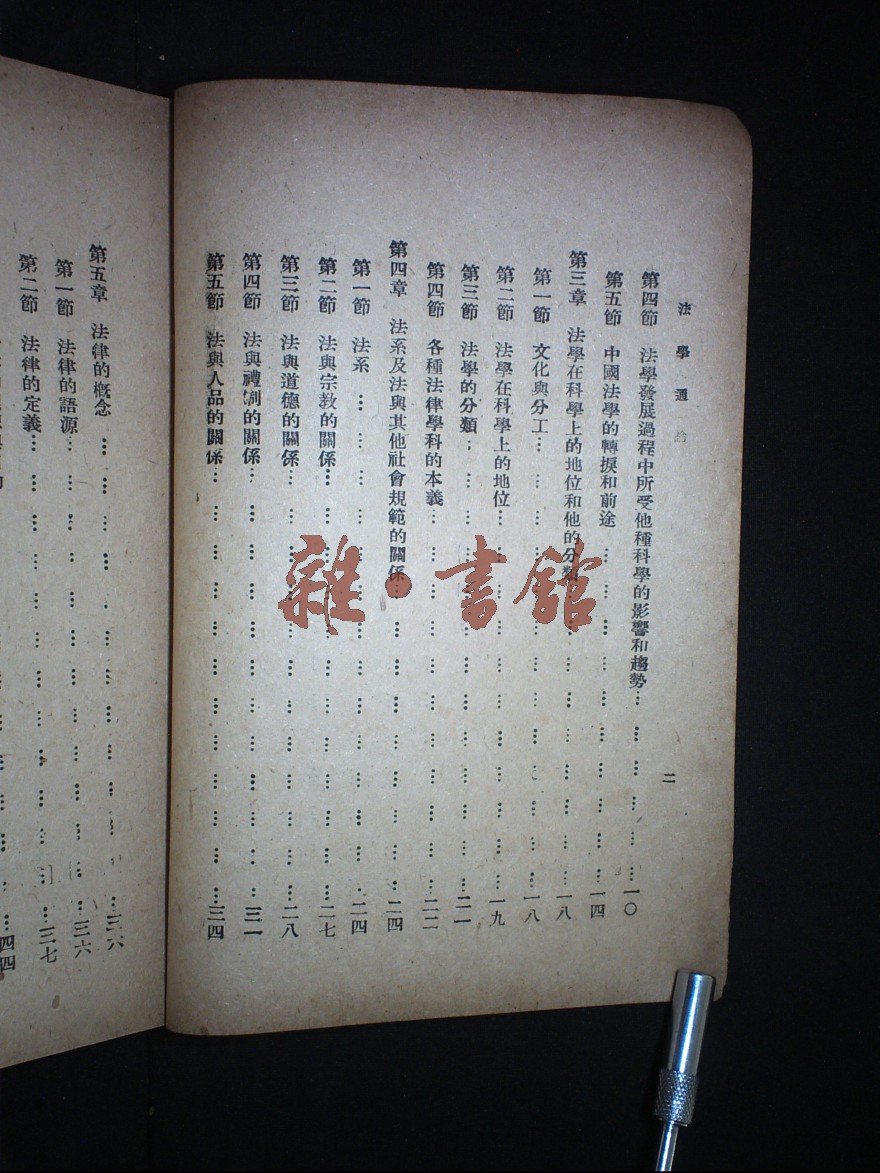 法學通論
二
第四節 法學發展過程中所受他種科學的影響和趨勢…………………一〇
第五節 中國法學的轉捩和前途…………………一四
第三章 法學在科學上的地位和他的分類…………………一八
第一節 文化與分工…………………一八
第二節 法學在科學上的地位…………………一九
第三節 法學的分類…………………二一
第四節 各種法律學科的本義…………………二二
第四章 法系及法與其他社會規範的關係…………………二四
第一節 法系…………………二四
第二節 法與宗教的關係…………………二七
第三節 法與道德的關係…………………二八
第四節 法與禮制的關係…………………三一
第五節 法與人品的關係…………………三四
第五章 法律的概念…………………三六
第一節 法律的語源…………………三六
第二節 法律的定義…………………三七
…四四
雜·書館